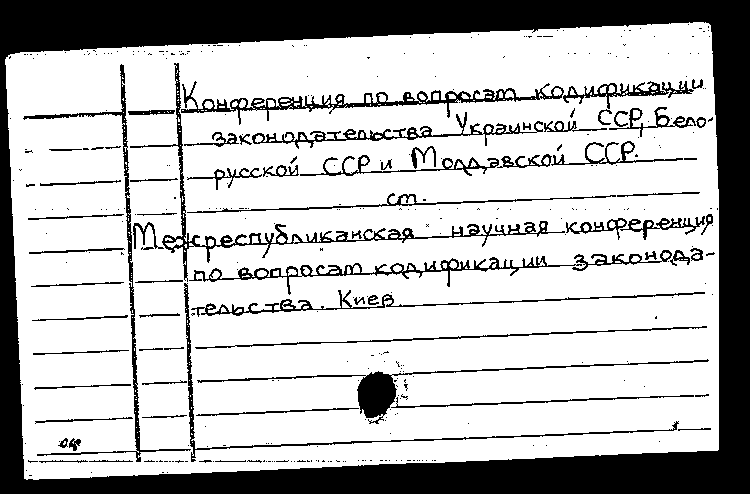 Конференция по вопросам кодификации
законодательства Украинской ССР, Бело-
русской ССР и Молдавской ССР.
см.
Межреспубликанская научная конференция
по вопросам кодификации законода-
тельства. Киев.